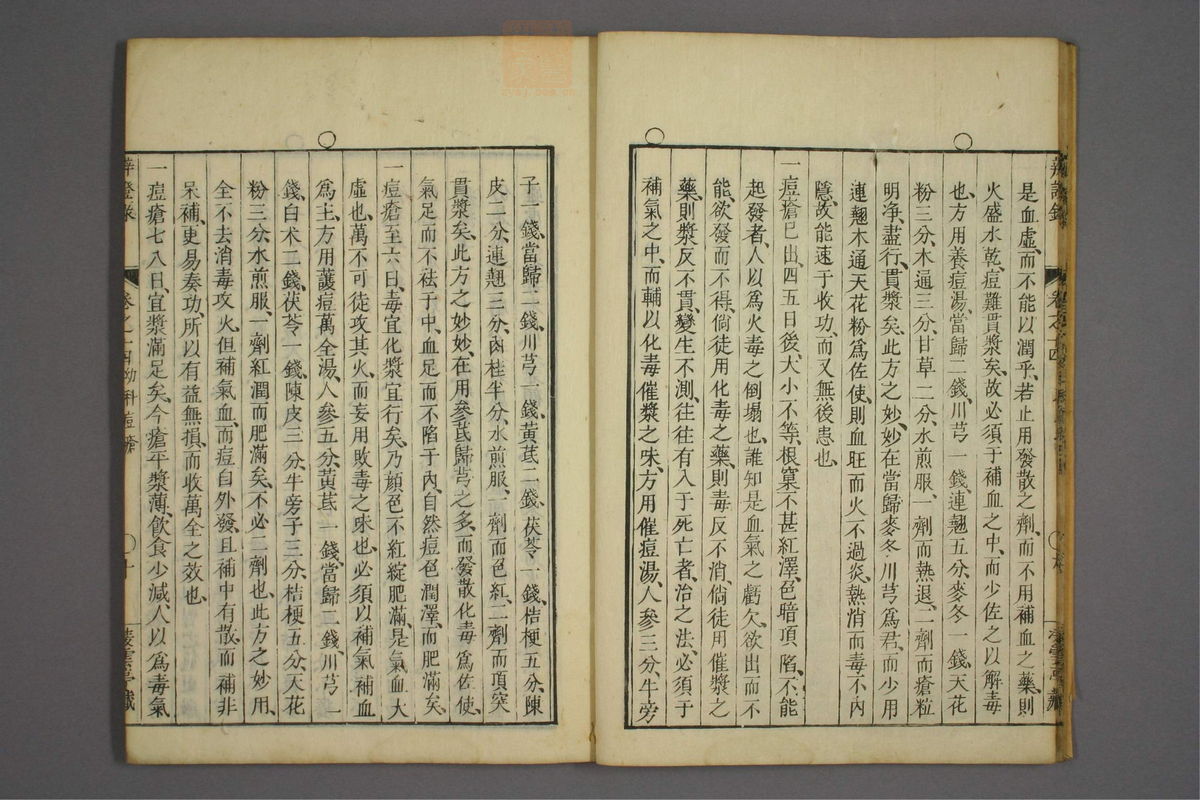 是血虛而不能以潤乎若止用發散之劑而不用補血之藥則
火盛水乾痘難貫漿矣故必須于補血之中而少佐之以解毒
也方用養痘湯當歸二錢川芎一錢連翹五分麥冬一錢天花
粉三分木通三分甘草二分水煎服一劑而熱退二劑而瘡粒
明净盡行貫漿矣此方之妙妙在當歸麥冬川芎爲君而少用
連翹木通天花粉爲佐使則血旺而火不過炎熱消而毒不內
隱故能速于收功而又無後患也
一痘瘡已出四五日後大小不等根窠不甚紅澤色暗頂陷不能
起發者人以爲火毒之倒塌也誰知是血氣之虧欠欲出而不
能欲發而不得倘徒用化毒之藥則毒反不消倘徒用催漿之
藥則漿反不貫變生不測往往有入于死亡者治之法必須于
補氣之中而輔以化毒催漿之味方用催痘湯人參三分牛旁
子一錢當歸二錢川芎一錢黃芪二錢茯苓一錢桔梗五分陳
皮二分連翹三分肉桂半分水煎服一劑而色紅二劑而頂突
貫漿矣此方之妙妙在用參芪歸芎之多而發散化毒爲佐使
氣足而不祛于中血足而不陷于內自然痘色潤澤而肥滿矣
一痘瘡至六日毒宜化漿宜行矣乃顏色不紅綻肥滿是氣血大
虛也萬不可徒攻其火而妄用敗毒之味也必須以補氣補血
爲主方用護痘萬全湯人參五分黃芪一錢當歸二錢川芎一
錢白术二錢茯苓一錢陳皮三分牛旁子三分桔梗五分天花
粉三分水煎服一劑紅潤而肥滿矣不必二劑也此方之妙用
全不去消毒攻火但補氣血而痘自外發且補中有散而補非
呆補更易奏功所以有益無損而收萬全之效也
一痘瘡七八日宜漿滿足矣今瘡平漿薄飲食少減人以爲毒氣
辛證錄
卷之十四幼科痘瘡
菱雲亭藏